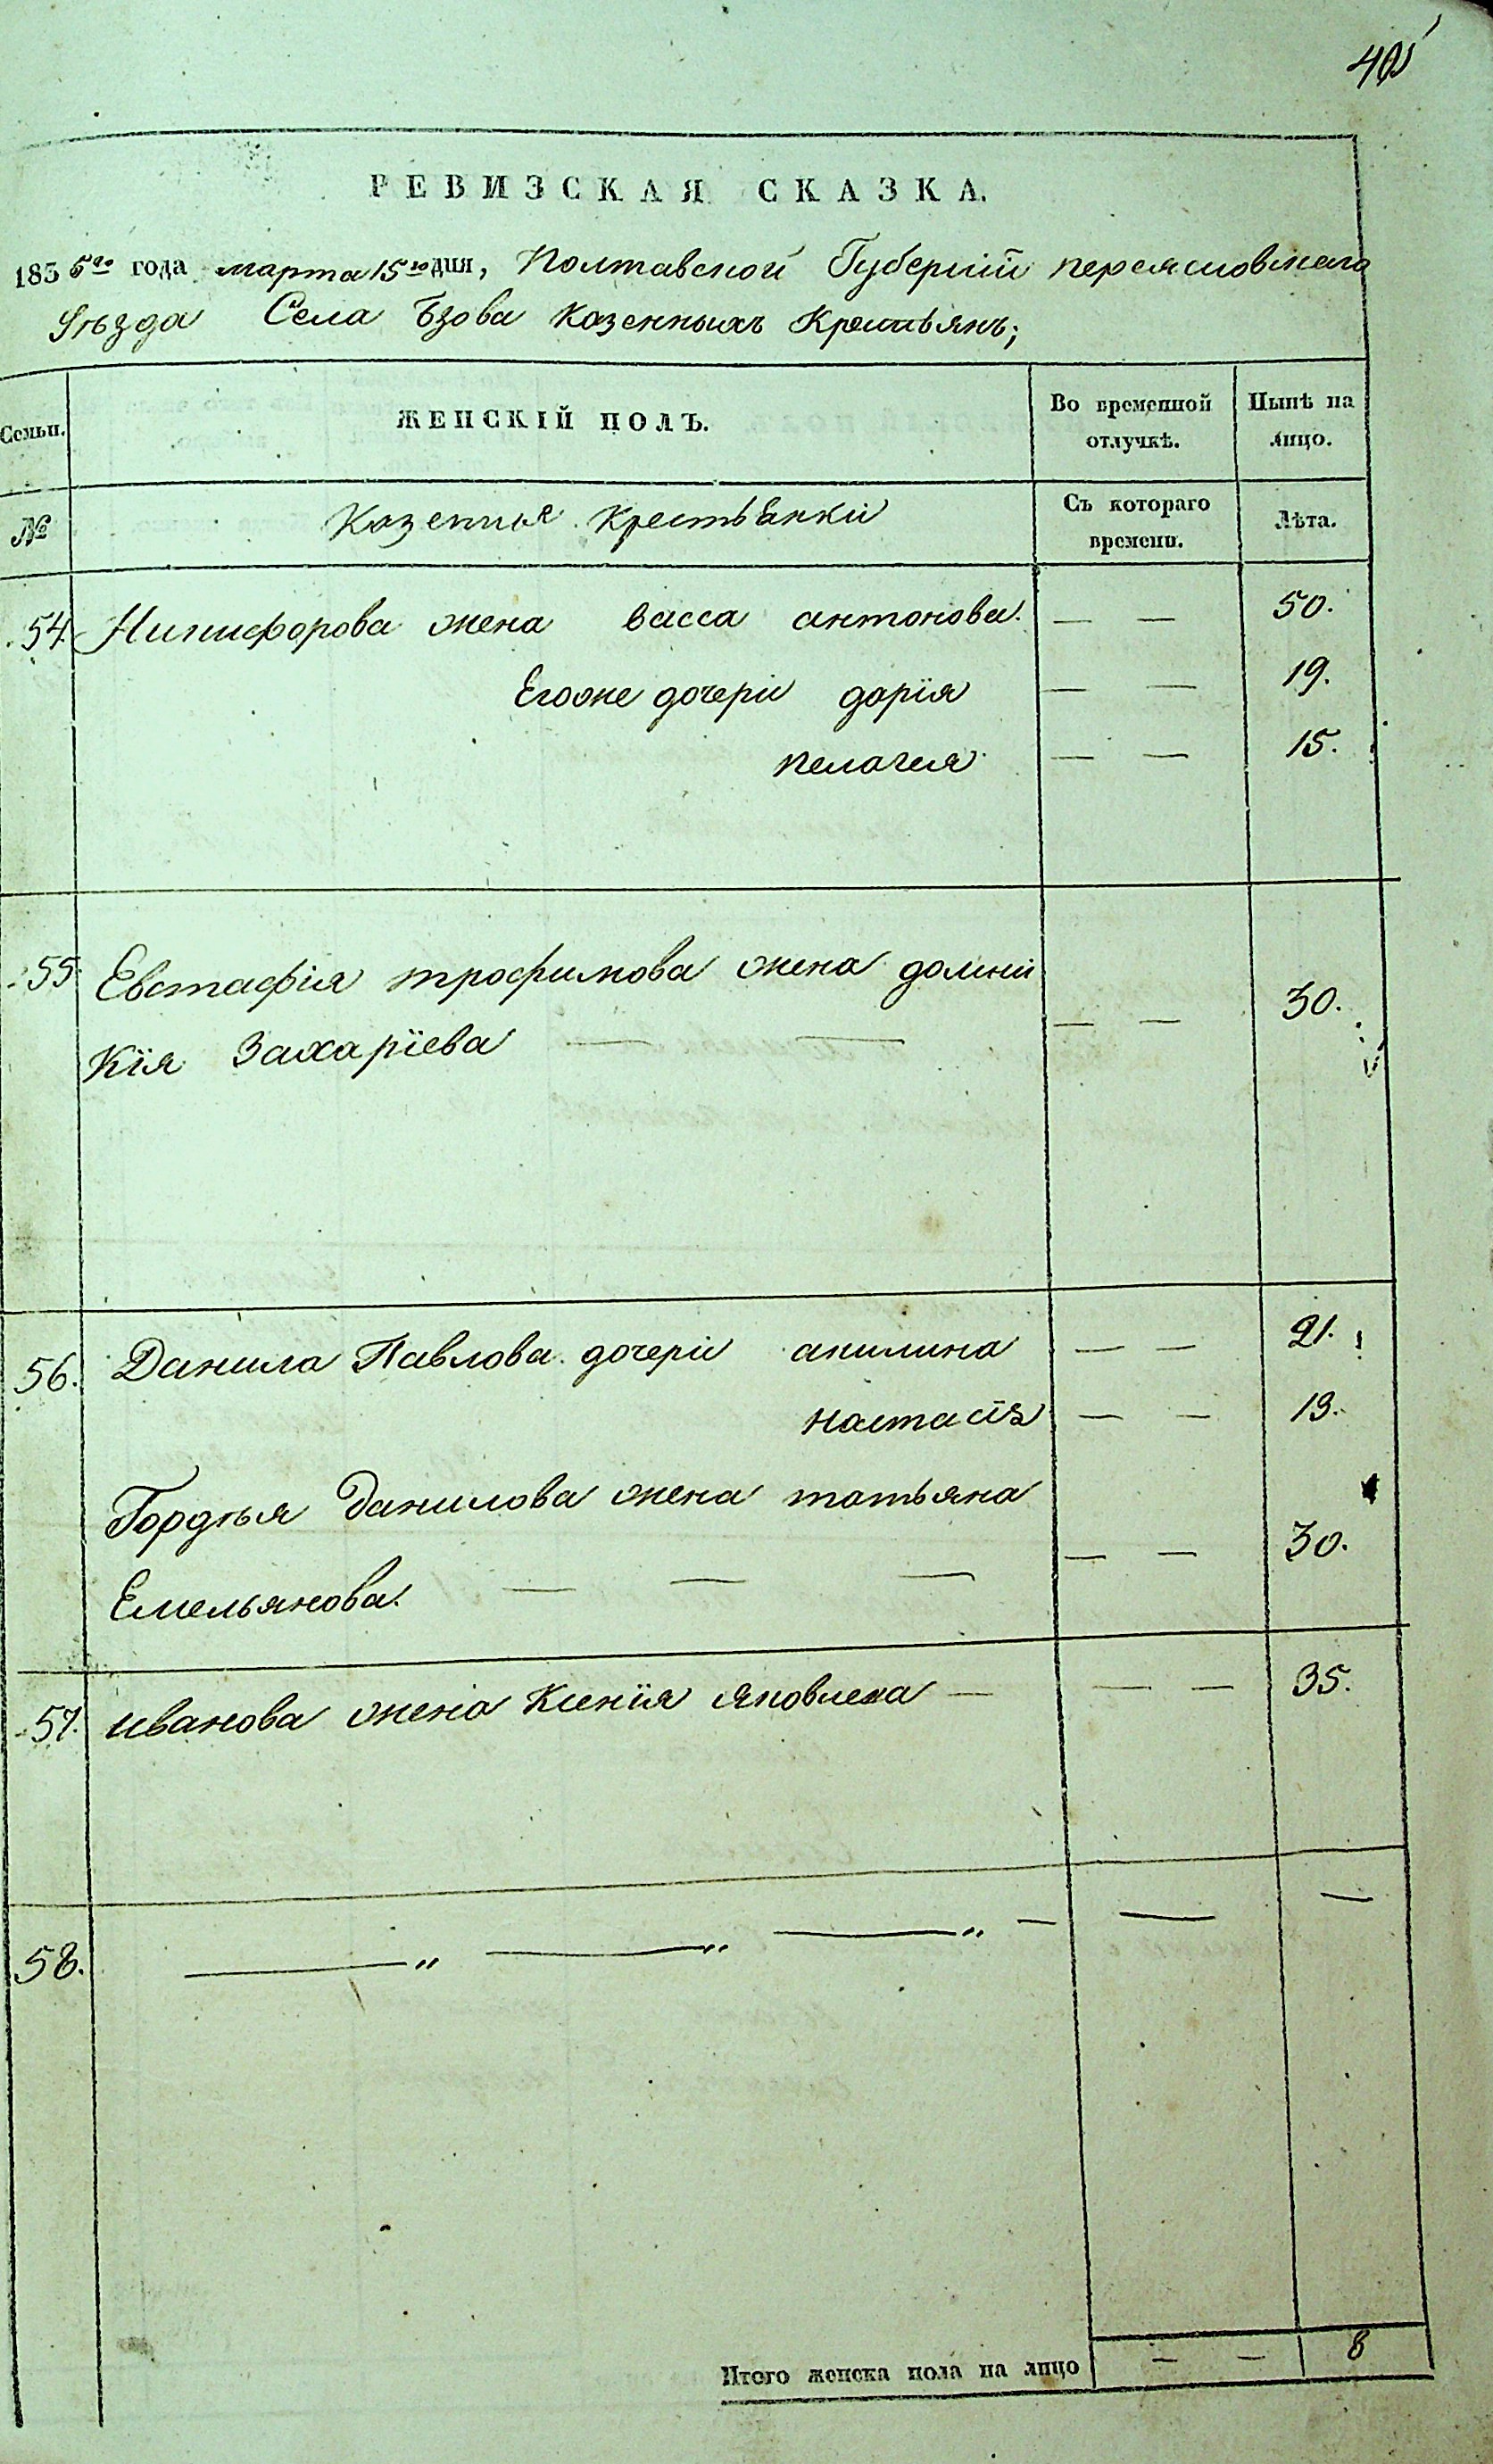 РЕВИЗСКАЯ СКАЗКА.
1835го года марта 15го дня, Полтавской Губерніи переясловскаго
Уѣзда Села Бзова Казенныхъ Крестьянъ;
Семьи.
ЖЕНСКІЙ ПОЛЪ.
Во временной отлучкѣ.
Нынѣ на лицо.
№
Казенныя Крестьянки
Съ котораго времени.
Лѣта.
54. Никифорова жена васса антонова. — — 50.
Егоже дочери дарія — — 19.
пелагея — — 15.
55. Евстафія трофимова жена домни
кія Захаріева — — — — 30.
56. Данила Павлова дочери акилина — — 21.
настасія — — 13.
Гордѣя Данилова жена татьяна
Емельянова. — — — — — 30.
57. иванова жена Ксенія Яковлева — — — 35.
58. — „ — „ — „ — — —
Итого женска пола на лицо — — 8